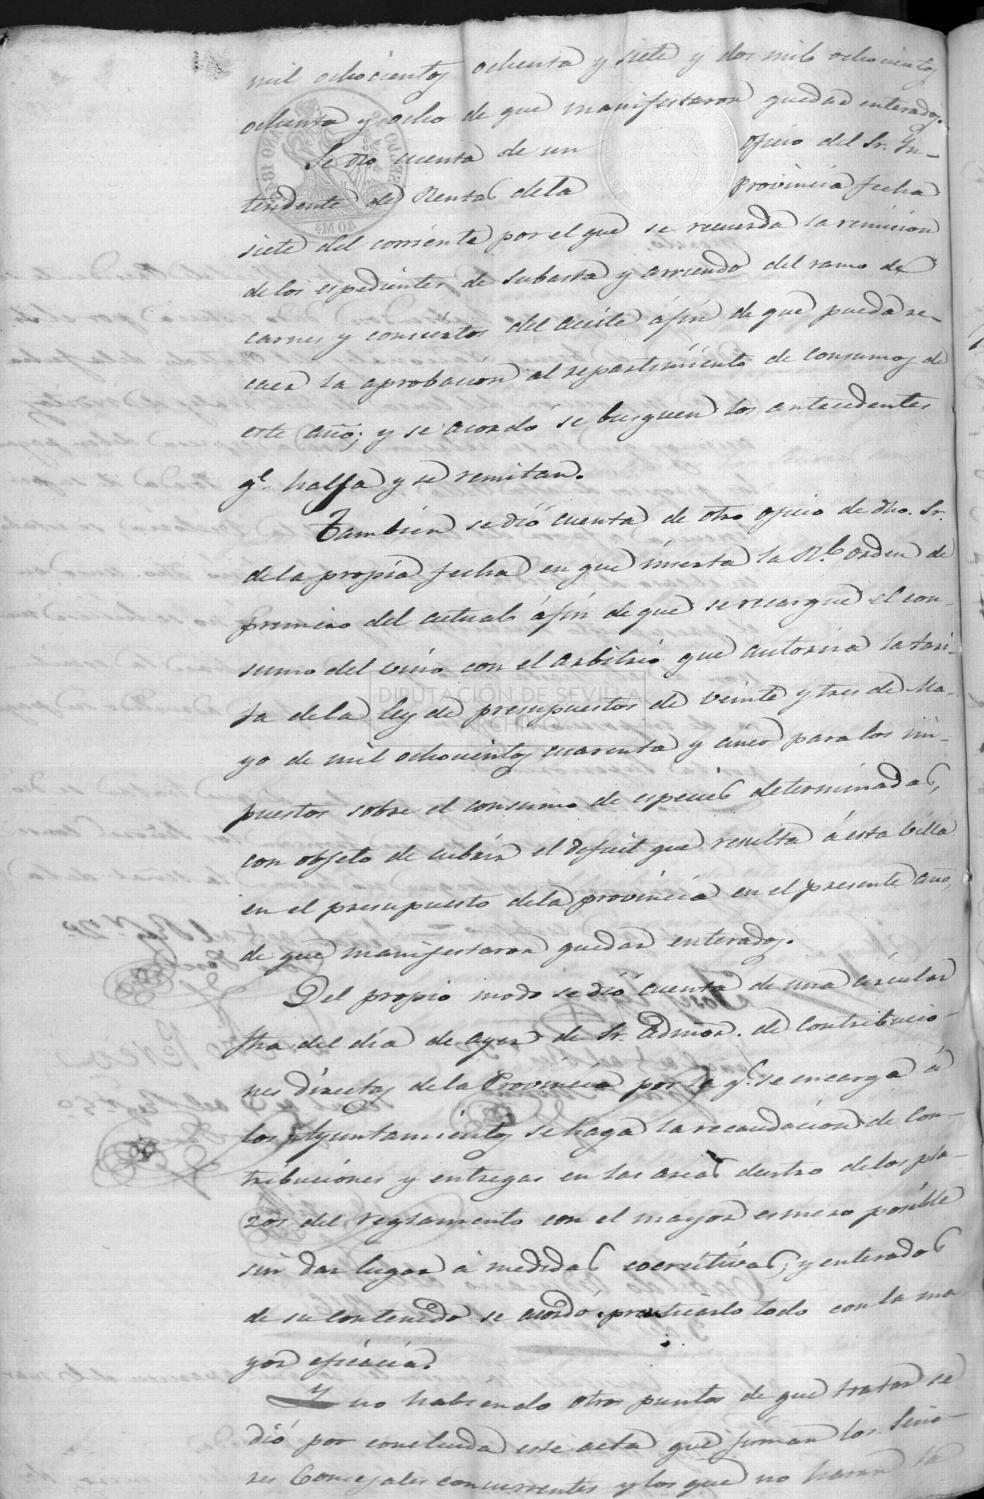 mil ochocientos ochenta y siete y dos mil ochocientos
ochenta y ocho de que manifestaron quedar enterados.
Se dio cuenta de un oficio del Sr. In-
tendente de Rentas de la Provincia fecha
siete del corriente por el que se recuerda la remision
de los espedientes de subasta y arriendo del ramo de
carnes y conciertos del aceite á fin de que pueda re-
caer la aprobacion al repartimiento de consumos de
este año; y se acordó se busquen los antecedentes
qe. halla y se remitan.
Tambien se dió cuenta de otro oficio de dho. Sr.
de la propia fecha en que inserta la Rl. Orden de
primero del actual á fin de que se recargue el con-
sumo del vino con el arbitrio que autoriza la tari-
fa de la ley de presupuestos de veinte y tres de Ma-
yo de mil ochocientos cuarenta y cinco para los im-
puestos sobre el consumo de especies determinadas,
con objeto de cubrir el deficit que resulta á esta Villa
en el presupuesto de la provincia en el presente año,
de que manifestaron quedar enterados.
Del propio modo se dió cuenta de una circular
fha del dia de ayer de Sr. Admor. de Contribucio-
nes directas de la Provincia por la qe. se encarga á
los Ayuntamientos se haga la recaudacion de Con-
tribuciones y entregas en las arcas dentro de los pla-
zos del reglamento con el mayor esmero posible
sin dar lugar á medidas coercitivas; y enterados
de su contenido se acordó practicarlo todo con la ma
yor eficacia.
Y no habiendo otros puntos de que tratar se
dió por concluida este acta que firman los Seño-
res Concejales concurrentes y los que no haran la
DIPUTACIÓN DE SEVILLA
ARCHIVO
40 Ms